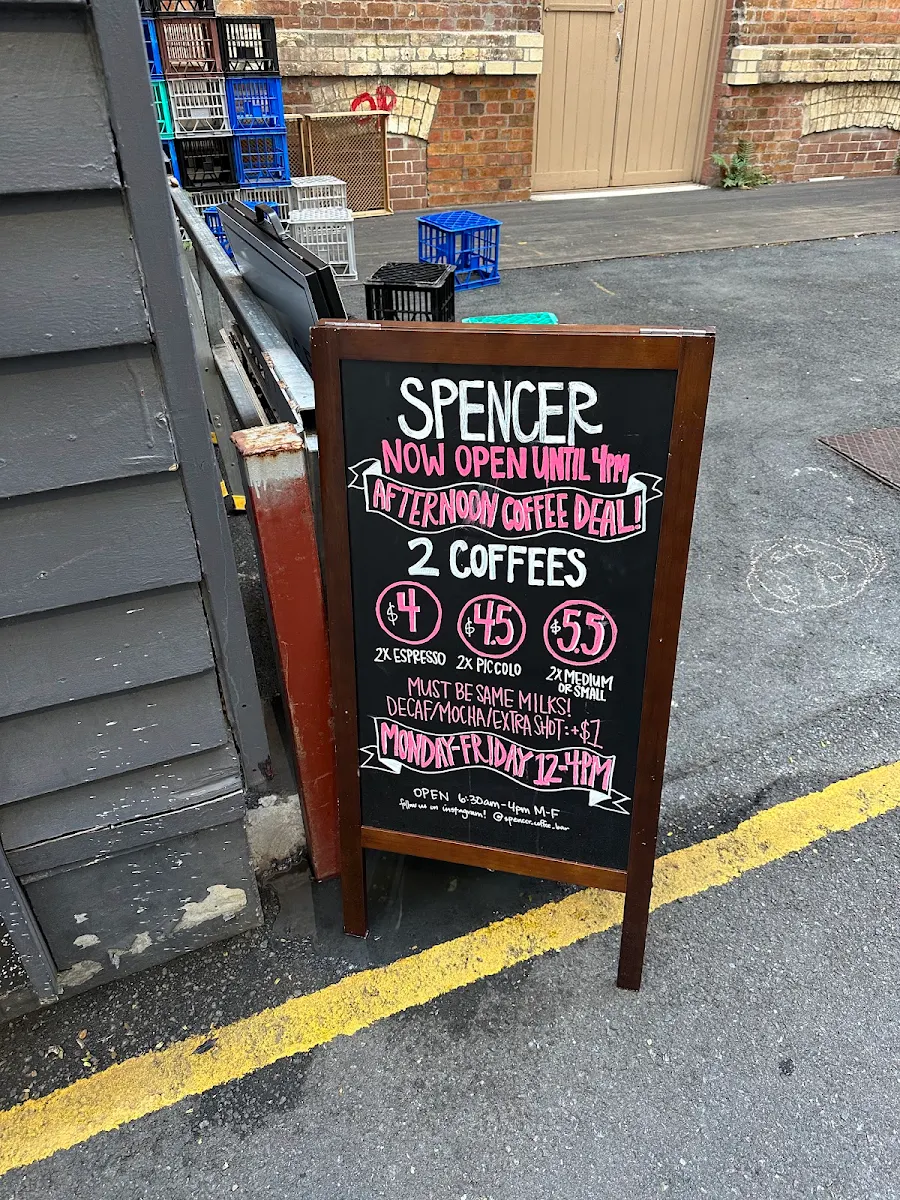 SPENCER
NOW OPEN UNTIL 4PM
AFTERNOON COFFEE DEAL!
2 COFFEES
$4 $4.5 $5.5
2X ESPRESSO 2X PICCOLO 2X MEDIUM
OR SMALL
MUST BE SAME MILKS!
DECAF/MOCHA/EXTRA SHOT: +$1
MONDAY-FRIDAY 12-4PM
OPEN 6:30am-4pm M-F
follow us on instagram! @spencer.coffee.bar